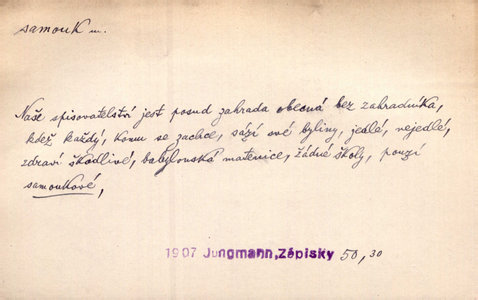 samouk m.
Naše spisovatelství jest posud zahrada obecná bez zahradníka,
kdež každý, komu se zachce, sází své byliny, jedlé, nejedlé,
zdraví škodlivé, babylonská matenice, žádné školy, pouzí
samoukové,
1907 Jungmann, Zápisky 50,30